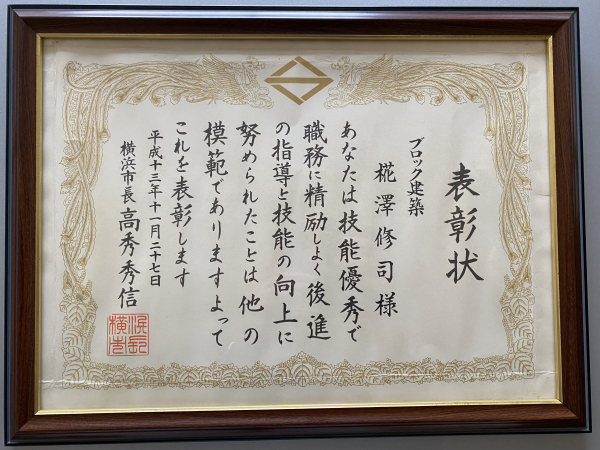 表彰状
ブロック建築
椛澤修司様
あなたは技能優秀で
職務に精励しよく後進
の指導と技能の向上に
努められたことは他の
模範でありますよって
これを表彰します
平成十三年十一月二十七日
横浜市長 高秀秀信